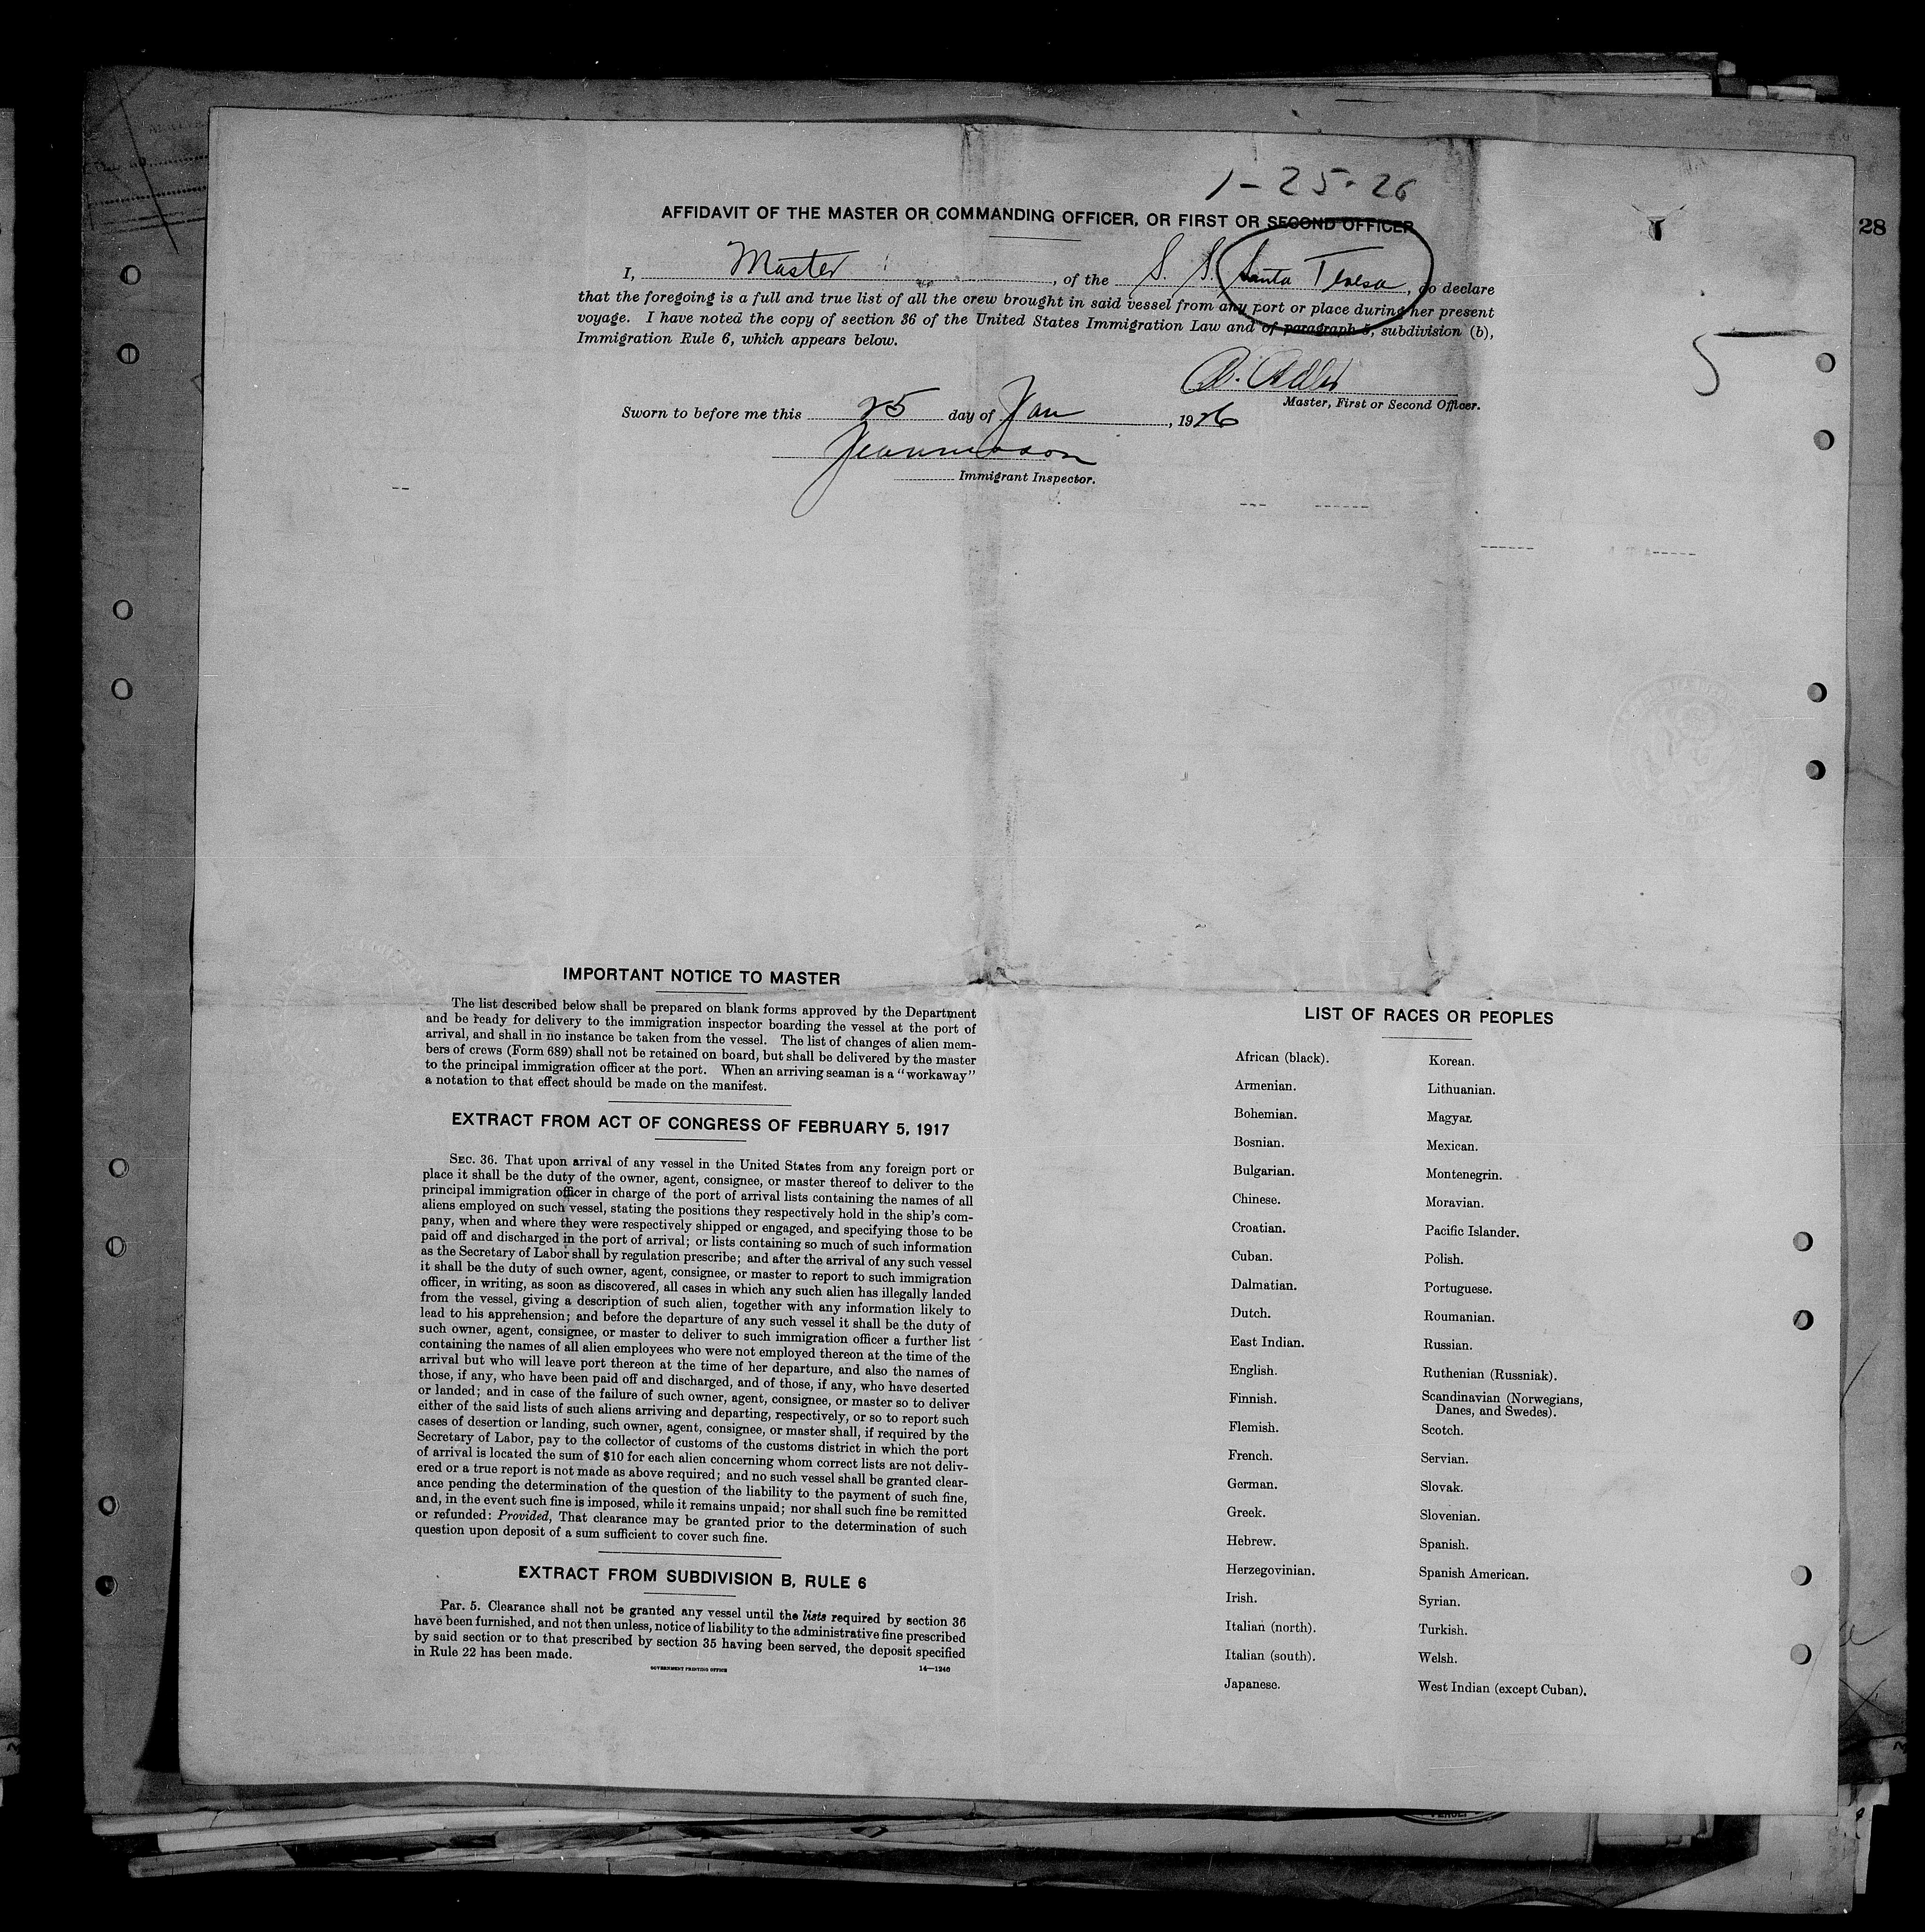 1-25-26
AFFIDAVIT OF THE MASTER OR COMMANDING OFFICER, OR FIRST OR SECOND OFFICER
28
I, Master, of the S. S. Santa Teresa, do declare
that the foregoing is a full and true list of all the crew brought in said vessel from any port or place during her present
voyage. I have noted the copy of section 36 of the United States Immigration Law and of paragraph 5, subdivision (b),
Immigration Rule 6, which appears below.
5
Adler
Master, First or Second Officer.
Sworn to before me this 25 day of Jan, 1926
Immigrant Inspector.
IMPORTANT NOTICE TO MASTER
The list described below shall be prepared on blank forms approved by the Department
and be ready for delivery to the immigration inspector boarding the vessel at the port of
arrival, and shall in no instance be taken from the vessel. The list of changes of alien mem-
bers of crews (Form 689) shall not be retained on board, but shall be delivered by the master
to the principal immigration officer at the port. When an arriving seaman is a "workaway"
a notation to that effect should be made on the manifest.
EXTRACT FROM ACT OF CONGRESS OF FEBRUARY 5, 1917
SEC. 36. That upon arrival of any vessel in the United States from any foreign port or
place it shall be the duty of the owner, agent, consignee, or master thereof to deliver to the
principal immigration officer in charge of the port of arrival lists containing the names of all
aliens employed on such vessel, stating the positions they respectively hold in the ship's com-
pany, when and where they were respectively shipped or engaged, and specifying those to be
paid off and discharged in the port of arrival; or lists containing so much of such information
as the Secretary of Labor shall by regulation prescribe; and after the arrival of any such vessel
it shall be the duty of such owner, agent, consignee, or master to report to such immigration
officer, in writing, as soon as discovered, all cases in which any such alien has illegally landed
from the vessel, giving a description of such alien, together with any information likely to
lead to his apprehension; and before the departure of any such vessel it shall be the duty of
such owner, agent, consignee, or master to deliver to such immigration officer a further list
containing the names of all alien employees who were not employed thereon at the time of the
arrival but who will leave port thereon at the time of her departure, and also the names of
those, if any, who have been paid off and discharged, and of those, if any, who have deserted
or landed; and in case of the failure of such owner, agent, consignee, or master so to deliver
either of the said lists of such aliens arriving and departing, respectively, or so to report such
cases of desertion or landing, such owner, agent, consignee, or master shall, if required by the
Secretary of Labor, pay to the collector of customs of the customs district in which the port
of arrival is located the sum of $10 for each alien concerning whom correct lists are not deliv-
ered or a true report is not made as above required; and no such vessel shall be granted clear-
ance pending the determination of the question of the liability to the payment of such fine,
and, in the event such fine is imposed, while it remains unpaid; nor shall such fine be remitted
or refunded: Provided, That clearance may be granted prior to the determination of such
question upon deposit of a sum sufficient to cover such fine.
EXTRACT FROM SUBDIVISION B, RULE 6
Par. 5. Clearance shall not be granted any vessel until the lists required by section 36
have been furnished, and not then unless, notice of liability to the administrative fine prescribed
by said section or to that prescribed by section 35 having been served, the deposit specified
in Rule 22 has been made.
GOVERNMENT PRINTING OFFICE 14—1240
LIST OF RACES OR PEOPLES
African (black).
Armenian.
Bohemian.
Bosnian.
Bulgarian.
Chinese.
Croatian.
Cuban.
Dalmatian.
Dutch.
East Indian.
English.
Finnish.
Flemish.
French.
German.
Greek.
Hebrew.
Herzegovinian.
Irish.
Italian (north).
Italian (south).
Japanese.
Korean.
Lithuanian.
Magyar.
Mexican.
Montenegrin.
Moravian.
Pacific Islander.
Polish.
Portuguese.
Roumanian.
Russian.
Ruthenian (Russniak).
Scandinavian (Norwegians,
Danes, and Swedes).
Scotch.
Servian.
Slovak.
Slovenian.
Spanish.
Spanish American.
Syrian.
Turkish.
Welsh.
West Indian (except Cuban).